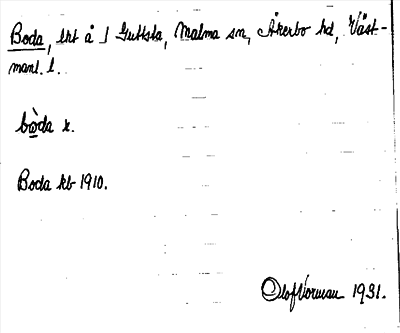 Boda, lht å 1 Guttsta, Malma sn, Åkerbo hd, Väst-
manl. l.
bò̱da k.
Boda kb 1910.
Olof Norman 1931.